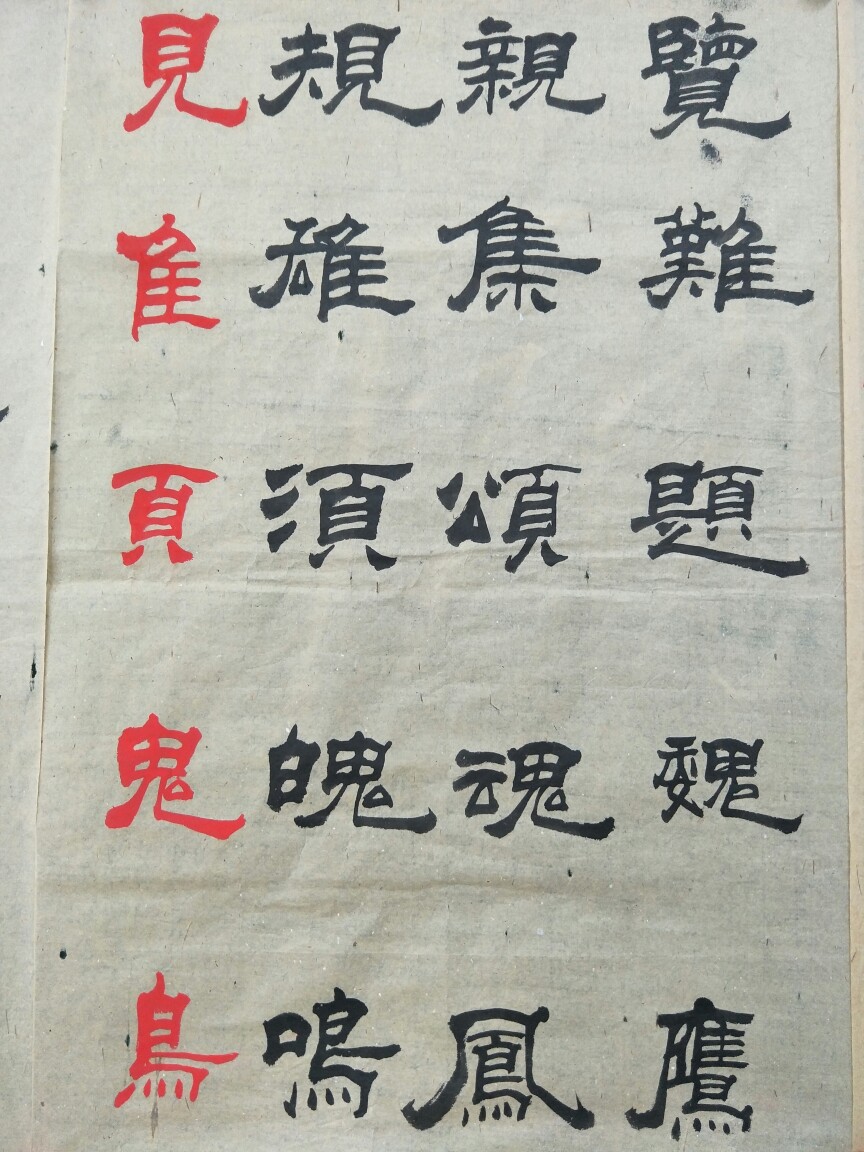 見規親覽
隹雄集難
頁須頌題
鬼魄魂魏
鳥鳴鳳鷹